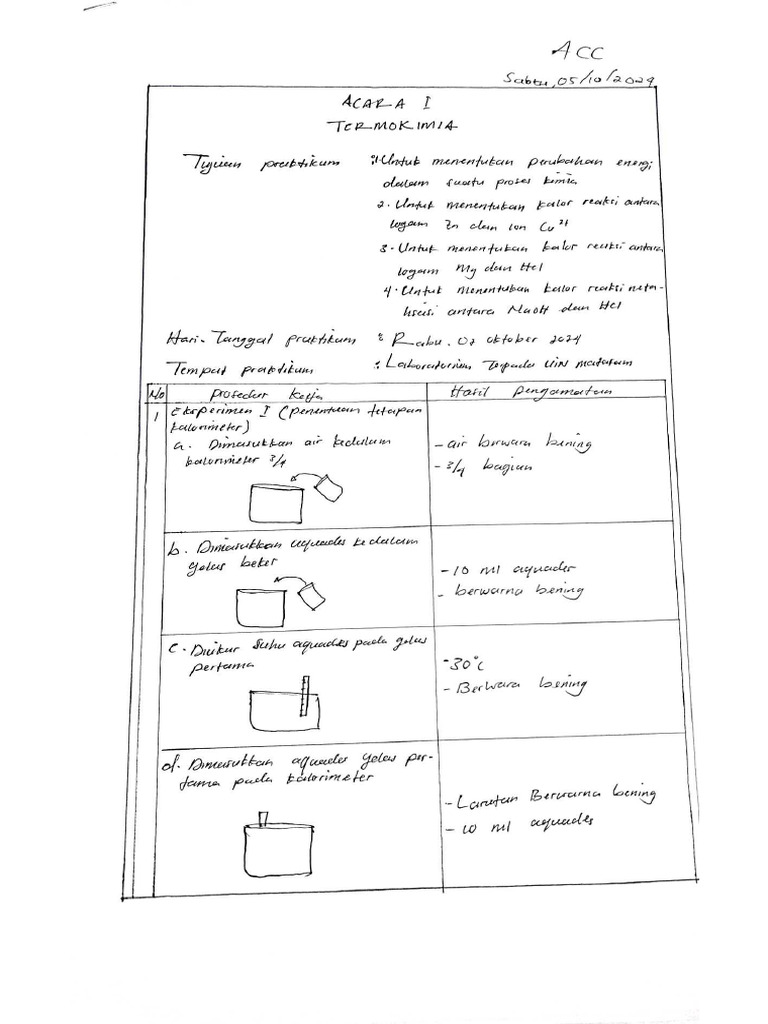 ACC
Sabtu, 05/10/2024
ACARA I
TERMOKIMIA
Tujuan praktikum : 1. Untuk menentukan perubahan energi
dalam suatu proses kimia
2. Untuk menentukan kalor reaksi antara
logam Zn dan ion Cu²⁺
3. Untuk menentukan kalor reaksi antara
logam Mg dan Hcl
4. Untuk menentukan kalor reaksi netra-
lisasi antara NaOH dan Hcl
Hari-Tanggal praktikum : Rabu, 02 oktober 2024
Tempat praktikum : Laboratorium Terpadu UIN mataram
No prosedur kerja Hasil pengamatan
1 Eksperimen I (penentuan tetapan
kalorimeter)
a. Dimasukkan air kedalam
kalorimeter 3/4
- air berwara bening
- 3/4 bagian
b. Dimasukkan aquades kedalam
gelas beker
- 10 ml aquades
- berwarna bening
c. Diukur suhu aquades pada gelas
pertama
- 30°C
- Berwara bening
d. Dimasukkan aquades gelas per-
tama pada kalorimeter
- Larutan Berwarna bening
- 10 ml aquades